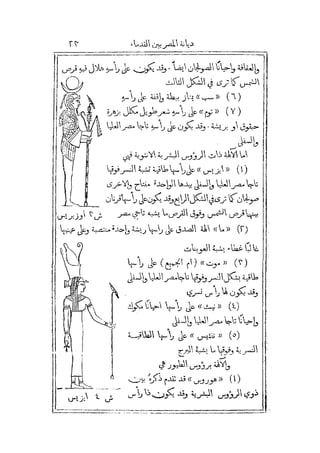 ديانة المصريين القدماء ٢٣
والعفافة واحيانًا الصولجان ايضًا . وقد يكون على رأسهِ هلال فيهِ قرص
الشمس كما ترى في الشكل الثالث
(٦) «سب» يمتاز ببطة واقفة على رأسهِ
(٧) «نوم» على رأسهِ شعر طويل مكلل بزهرة
حبقوق او بريشة . وقد يكون على رأسهِ تاجا مصر العليا
والسفلى
اما الآلهة ذات الرؤوس البشرية الانثوية فهي
(١) «ايزيس» على رأسها طاقية تشبه النسر فوقها
تاجا مصر العليا والسفلى بيدها الواحدة مفتاح والاخرى
صولجان كما ترى في الشكل الرابع وقد يكون على رأسها قرنان
بينهما قرص الشمس وفوق القرص ما يشبه تاجي مصر
ش ٣ اوزيريس
(٢) «ما» الهة الصدق على رأسها ريشة واحدة منتصبة وعلى عينيها
غالبًا غطاء يشبه العوينات
(٣) «موت» (ام الجميع) على رأسها
طاقية بشكل النسر وفوقها تاجا مصر العليا والسفلى
وقد يكون لها رأس نسري
(٤) «نيث» على رأسها احيانًا مكوك
واحيانًا تاجا مصر العليا والسفلى
(٥) «نفتيس» على رأسها الطاقية
النسرية وفوقها ما يشبه البرج
والآلهة برؤوس الطيور هي
(١) «هوروس» قد تقدم ذكره بين
ذوي الرؤوس البشرية وقد يكون ذا رأس
ش ٤ ايزيس